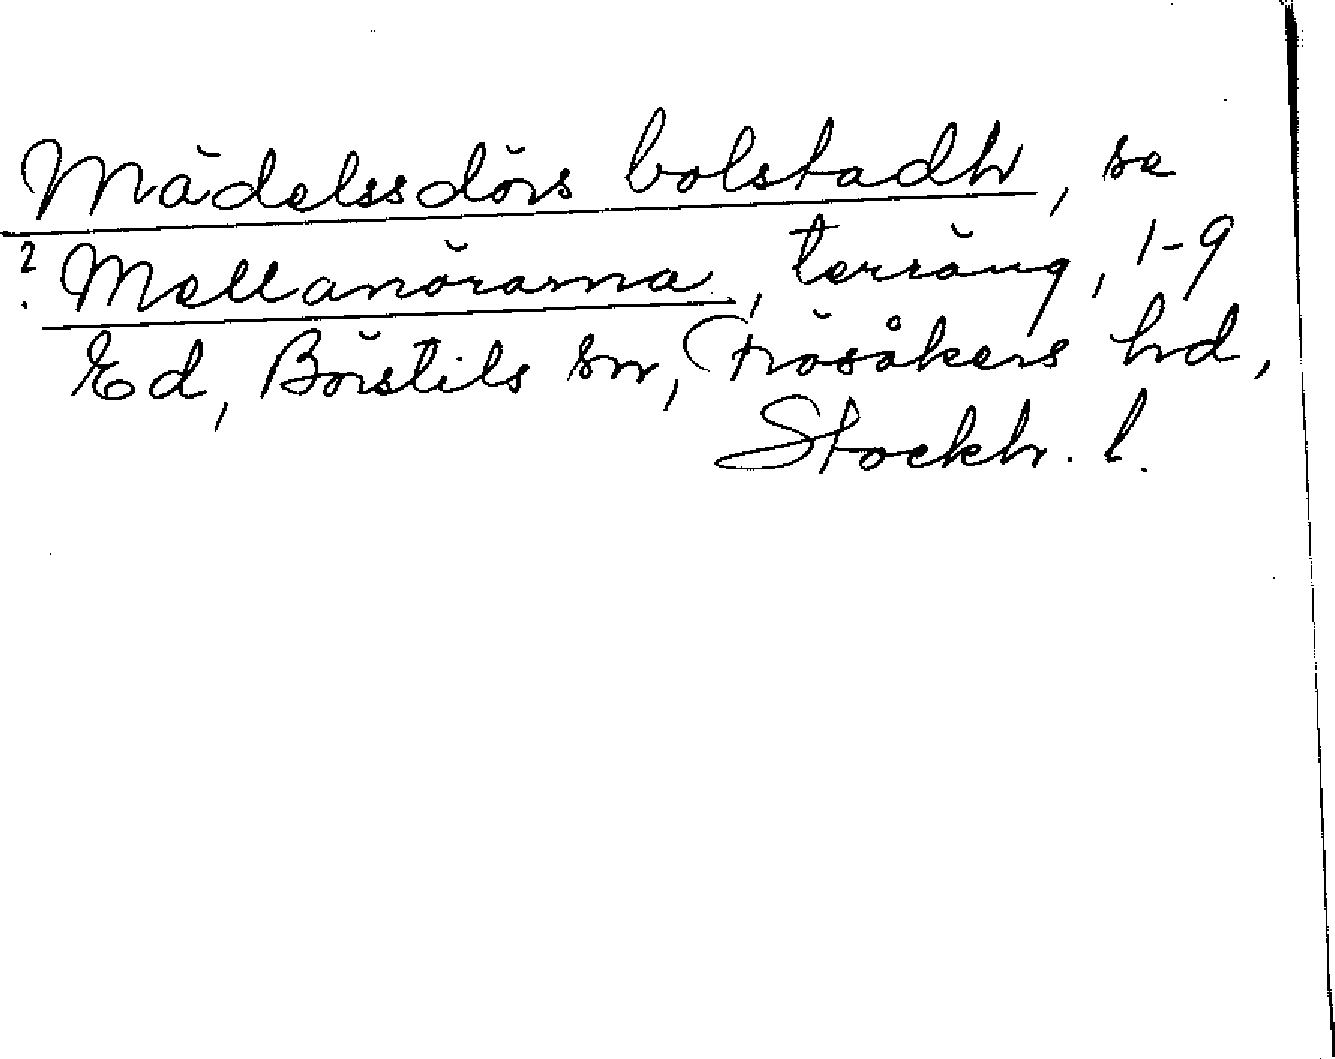 Mädelssdörs bolstadh, se
? Mellanörarna, terräng, 1-9
Ed, Börstils sn, Frösåkers hd,
Stockh. l.